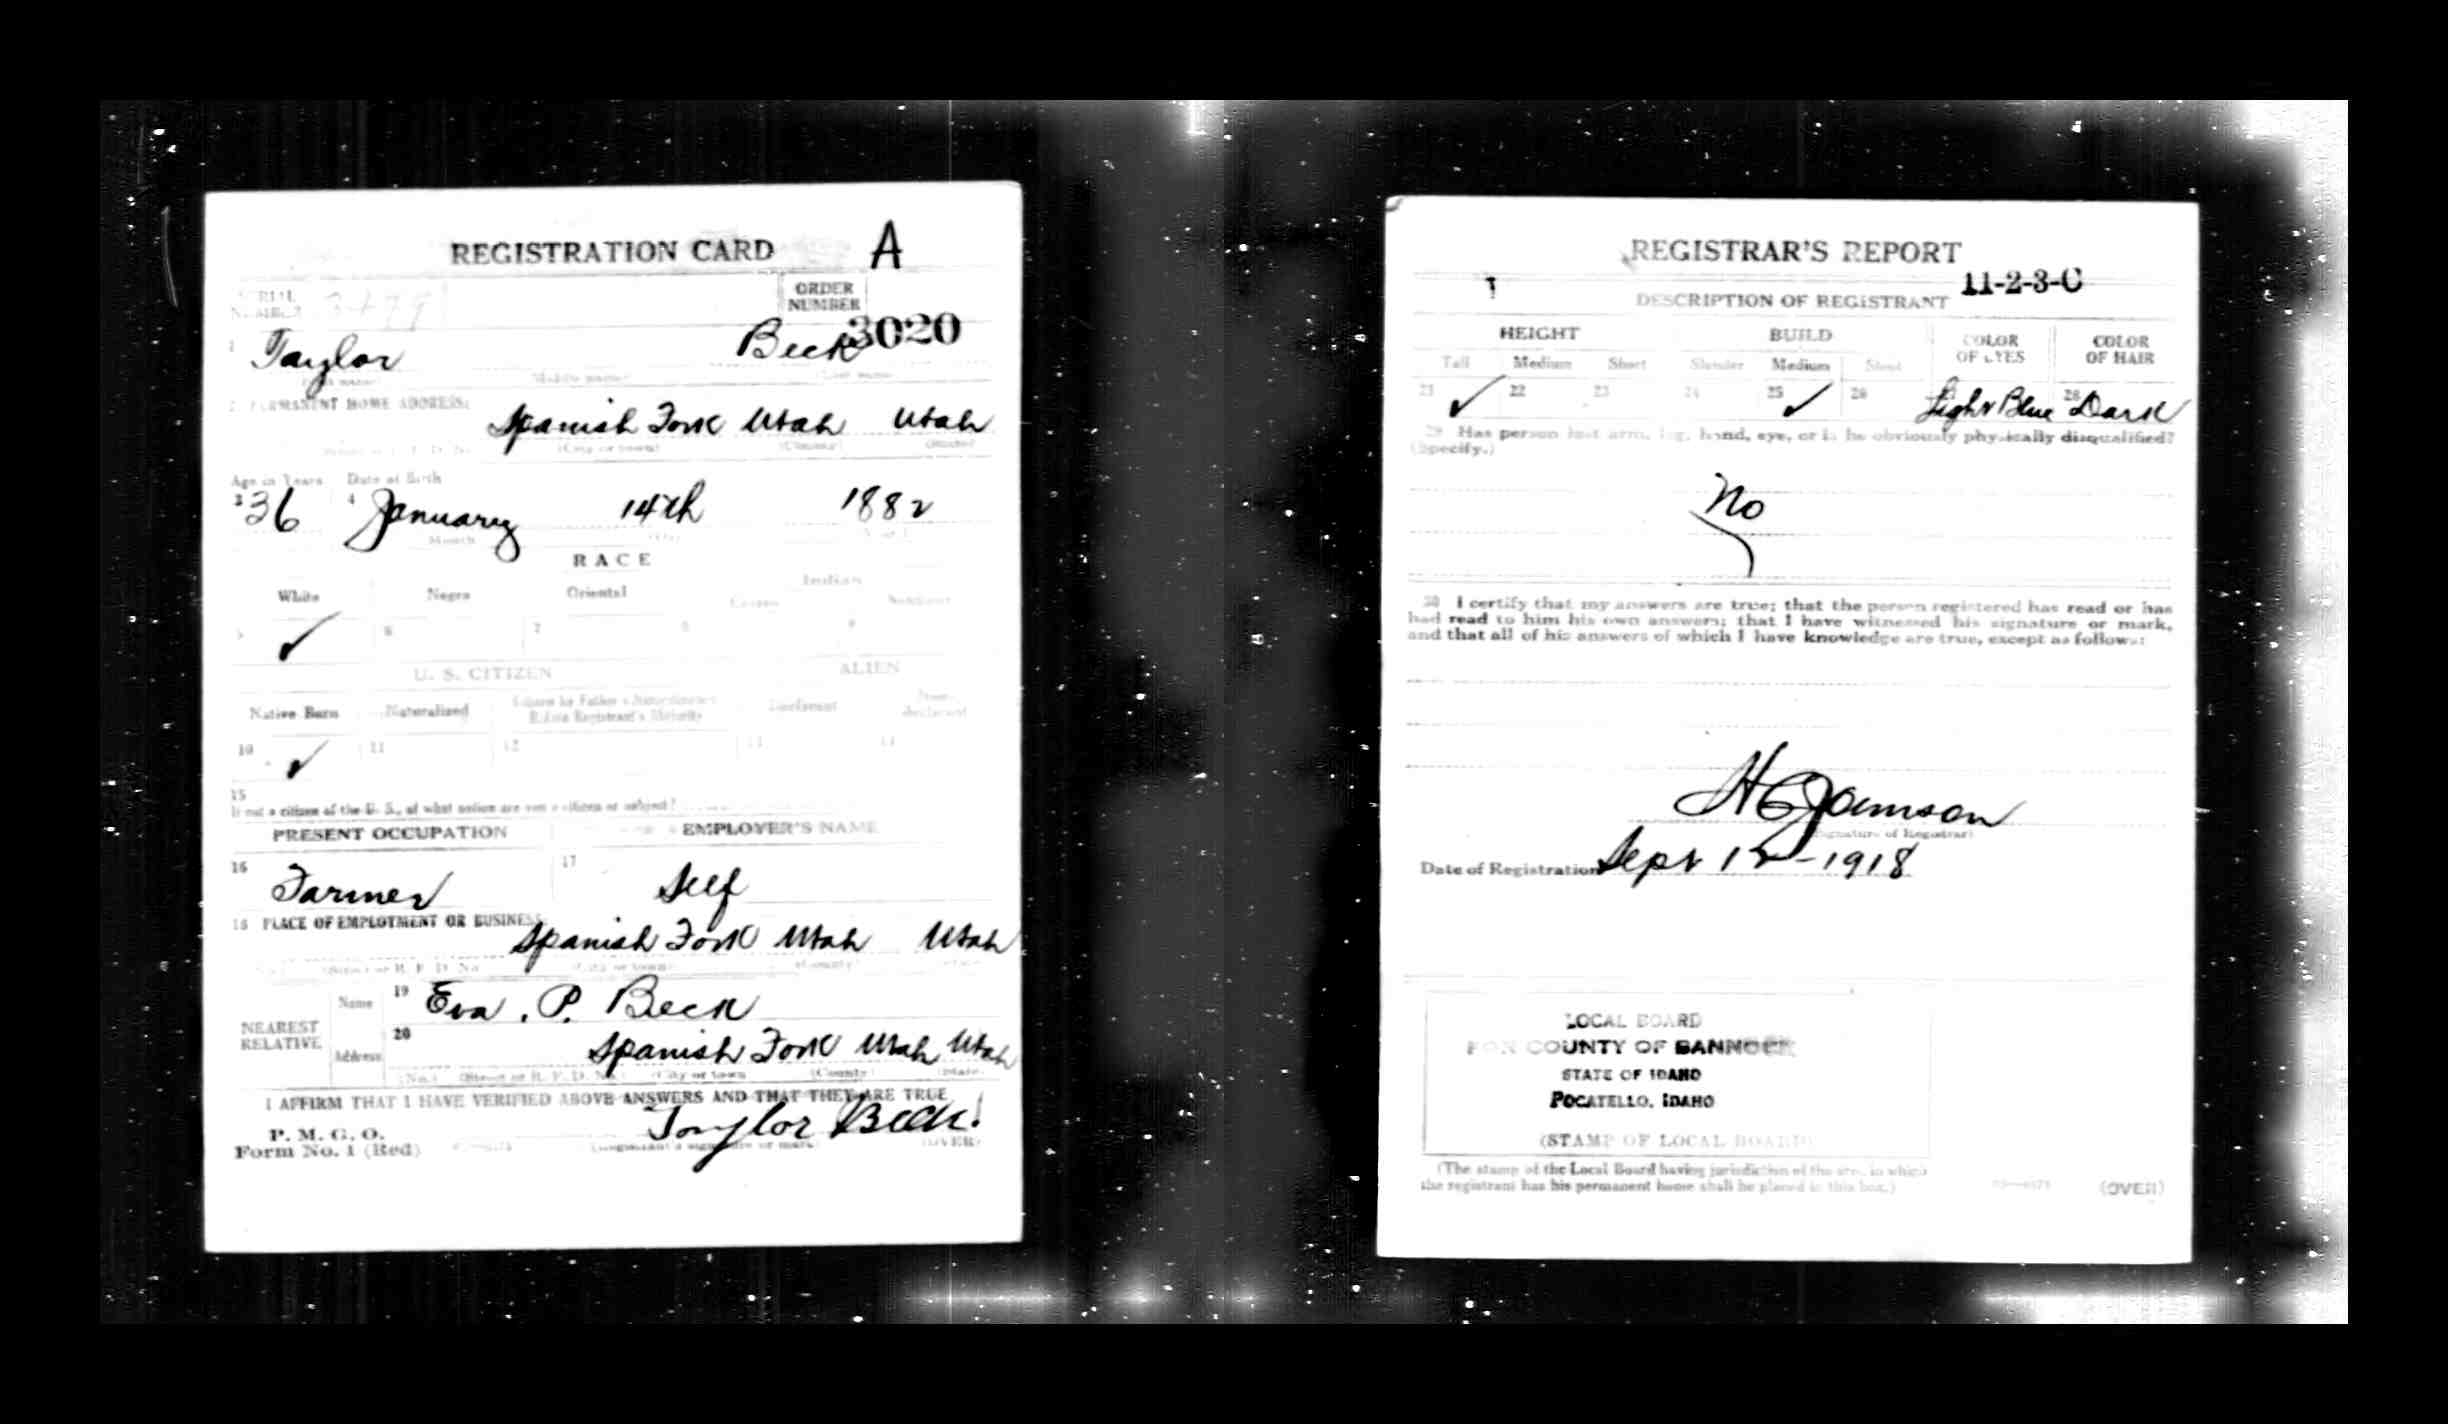 REGISTRATION CARD A
SERIAL NUMBER
ORDER NUMBER 3020
1 Taylor Beck
(First name) (Middle name) (Last name)
2 PERMANENT HOME ADDRESS:
Spanish Fork Utah Utah
(City or town) (County) (State)
Age in Years Date of Birth
3 36 4 January 14th 1882
Month
RACE
White Negro Oriental Indian
Citizen Noncitizen
5 ✓ 6 7 8 9
U. S. CITIZEN ALIEN
Native Born Naturalized Citizen by Father's Naturalization Before Registrant's Majority Declarant Non-declarant
10 ✓ 11 12 13 14
15
If not a citizen of the U. S., of what nation are you a citizen or subject?
PRESENT OCCUPATION EMPLOYER'S NAME
16 Farmer 17 Self
18 PLACE OF EMPLOYMENT OR BUSINESS:
Spanish Fork Utah Utah
(Street or R. F. D. No.) (City or town) (County)
NEAREST RELATIVE
Name 19 Eva . P. Beck
Address 20 Spanish Fork Utah Utah
(No.) (Street or R. F. D. No.) (City or town) (County) (State)
I AFFIRM THAT I HAVE VERIFIED ABOVE ANSWERS AND THAT THEY ARE TRUE
P. M. G. O.
Form No. 1 (Red) Taylor Beck.
(Registrant's signature or mark) (OVER)
REGISTRAR'S REPORT
11-2-3-C
DESCRIPTION OF REGISTRANT
HEIGHT BUILD COLOR OF EYES COLOR OF HAIR
Tall Medium Short Slender Medium Stout
21 ✓ 22 23 24 25 ✓ 26 27 Light Blue 28 Dark
29 Has person lost arm, leg, hand, eye, or is he obviously physically disqualified?
(Specify.)
No
30 I certify that my answers are true; that the person registered has read or has
had read to him his own answers; that I have witnessed his signature or mark,
and that all of his answers of which I have knowledge are true, except as follows:
(Signature of Registrar)
Date of Registration Sept 12-1918
LOCAL BOARD
FOR COUNTY OF BANNOCK
STATE OF IDAHO
POCATELLO, IDAHO
(STAMP OF LOCAL BOARD)
(The stamp of the Local Board having jurisdiction of the area in which
the registrant has his permanent home shall be placed in this box.)
(OVER)